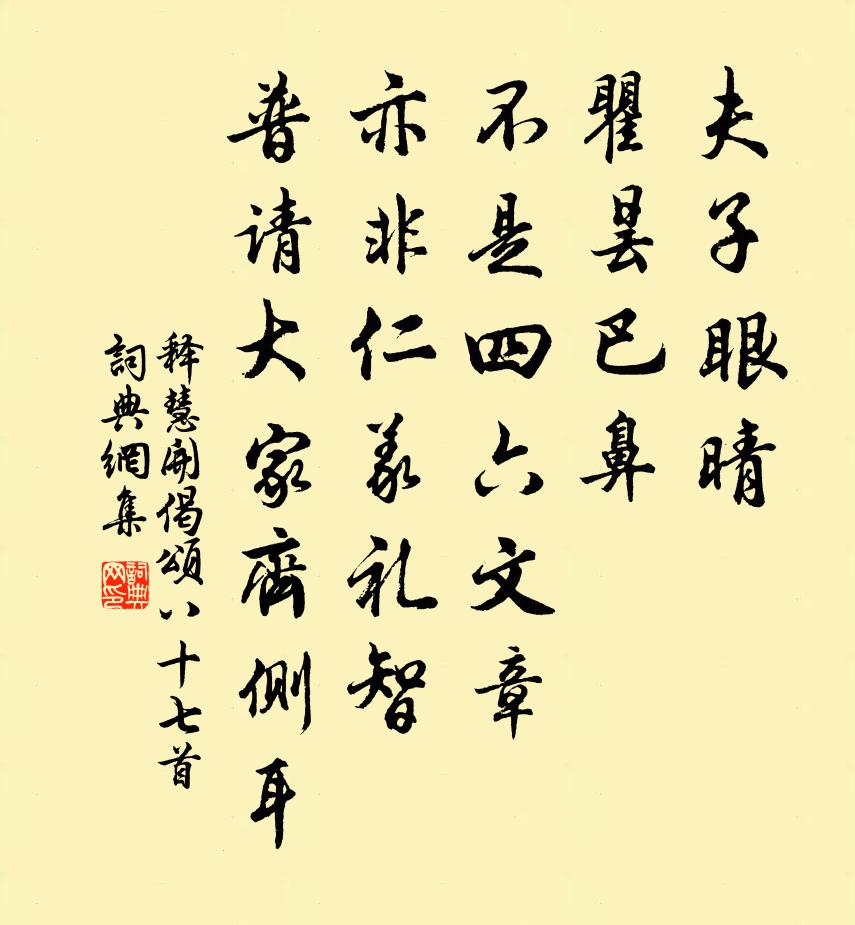 夫子眼晴
瞿昙巴鼻
不是四六文章
亦非仁义礼智
普请大家齊侧耳
释慧开偈颂八十七首
詞典網集
詞典网印